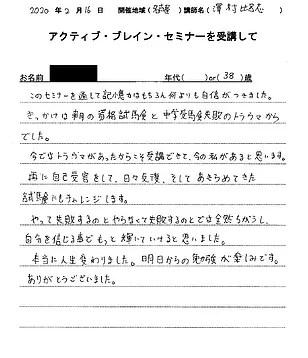 2020年2月16日 開催地域(名古屋)講師名(澤村比呂志)
アクティブ・ブレイン・セミナーを受講して
お名前 年代( )or(38)歳
このセミナーを通して記憶力はもちろん何よりも自信がつきました。
きっかけは朝の資格試験と中学受験失敗のトラウマから
でした。
今ではトラウマがあったからこそ受講できて、今の私があると思います。
常に自己受容をして、日々反復、そしてあきらめてきた
試験にもチャレンジします。
やって失敗するのとやらなくて失敗するのとでは全然ちがうし、
自分を信じる事でもっと輝いていけると思いました。
本当に人生変わりました。明日からの勉強が楽しみです。
ありがとうございました。